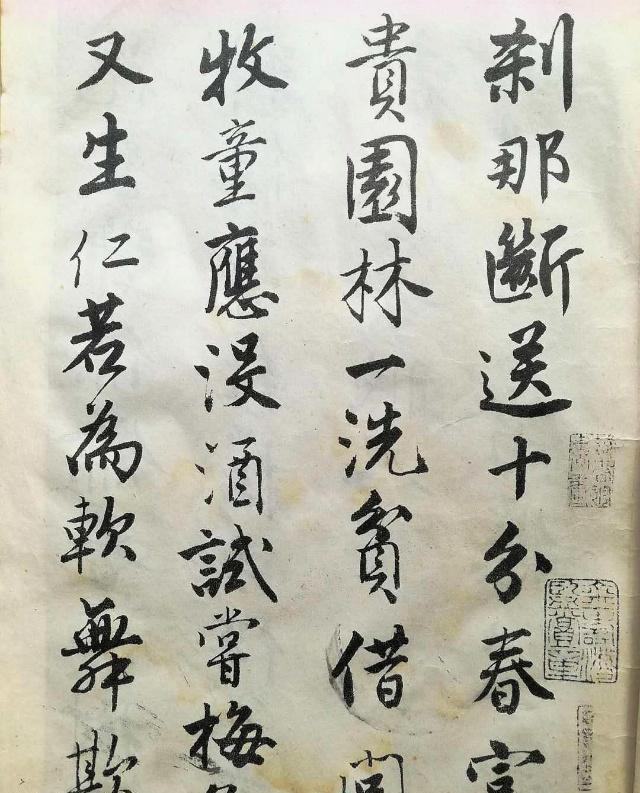 刹那斷送十分春富
貴園林一洗貧借問
牧童應沒酒試嘗梅
又生仁若為軟舞欺